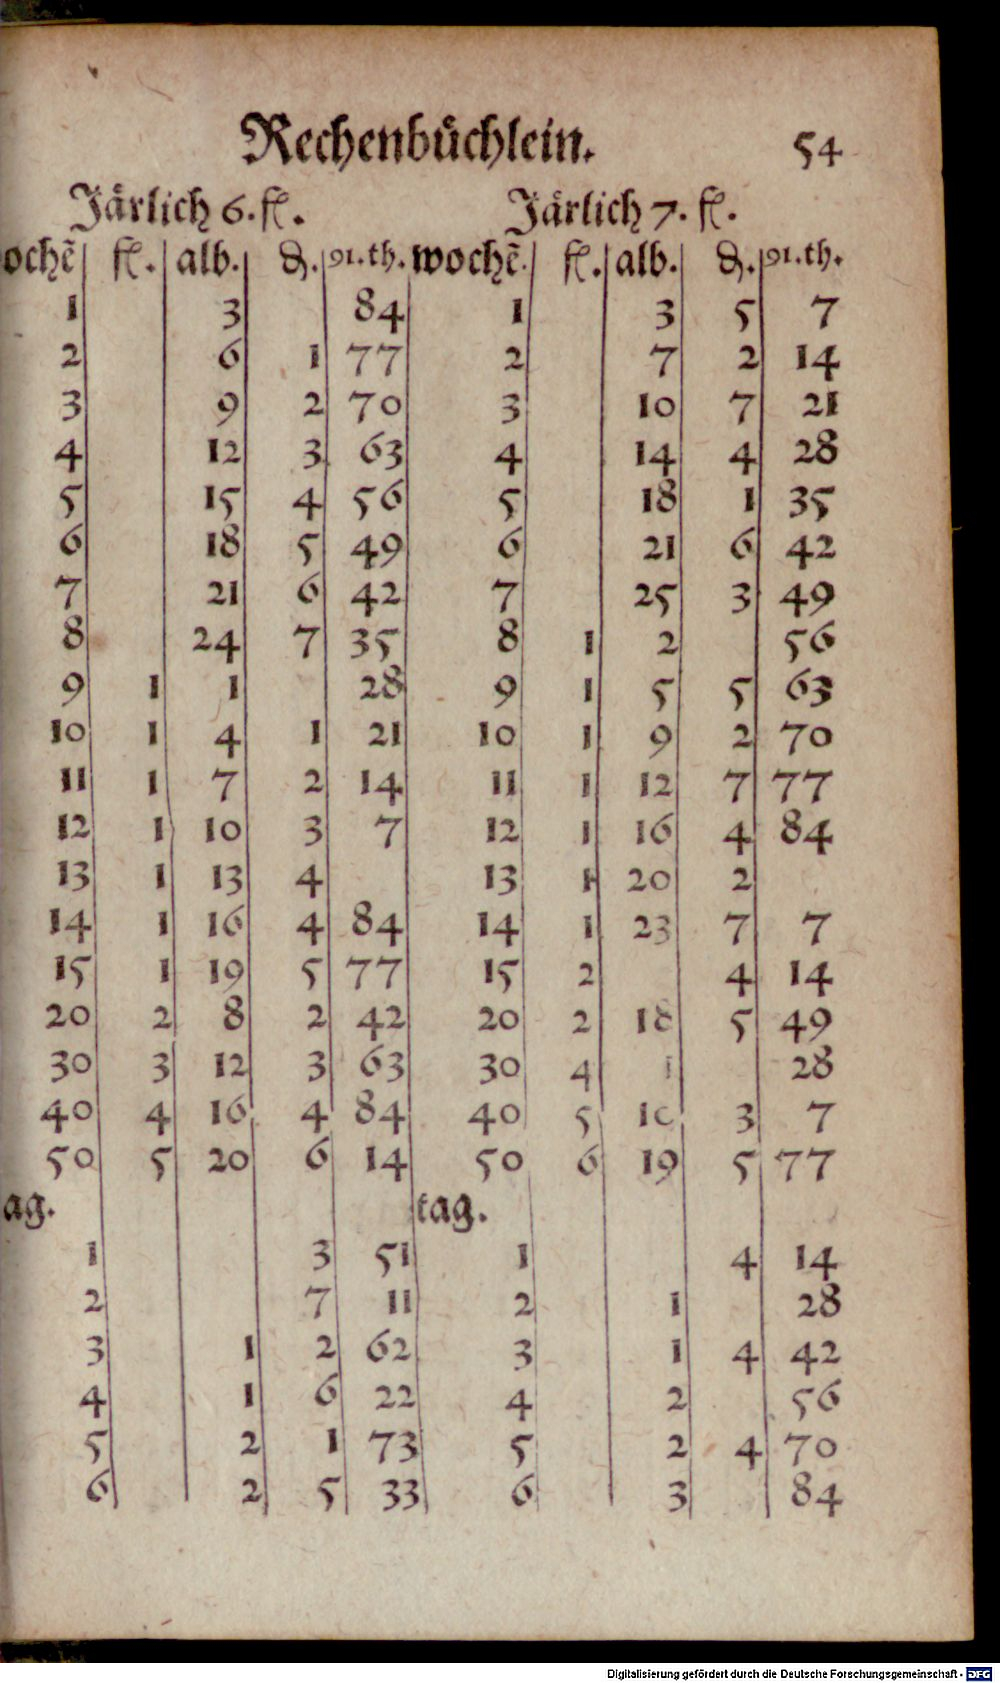 Rechenbüchlein. 54
Järlich 6. fl. Järlich 7. fl.
ochẽ fl. alb. ₰. 91.th. wochẽ. fl. alb. ₰. 91.th.
1 3 84 1 3 5 7
2 6 1 77 2 7 2 14
3 9 2 70 3 10 7 21
4 12 3 63 4 14 4 28
5 15 4 56 5 18 1 35
6 18 5 49 6 21 6 42
7 21 6 42 7 25 3 49
8 24 7 35 8 1 2 56
9 1 1 28 9 1 5 5 63
10 1 4 1 21 10 1 9 2 70
11 1 7 2 14 11 1 12 7 77
12 1 10 3 7 12 1 16 4 84
13 1 13 4 13 1 20 2
14 1 16 4 84 14 1 23 7 7
15 1 19 5 77 15 2 4 14
20 2 8 2 42 20 2 18 5 49
30 3 12 3 63 30 4 1 28
40 4 16 4 84 40 5 10 3 7
50 5 20 6 14 50 6 19 5 77
ag. tag.
1 3 51 1 4 14
2 7 11 2 1 28
3 1 2 62 3 1 4 42
4 1 6 22 4 2 56
5 2 1 73 5 2 4 70
6 2 5 33 6 3 84
Digitalisierung gefördert durch die Deutsche Forschungsgemeinschaft - DFG